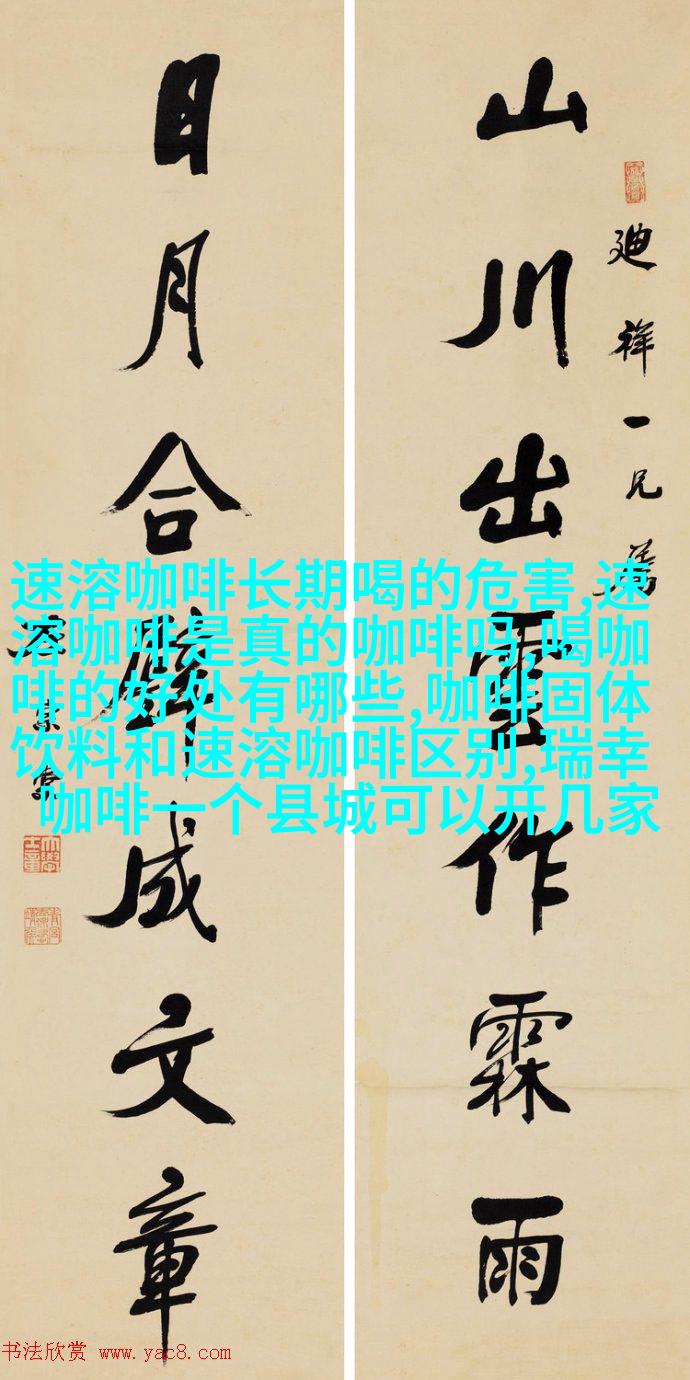 山川出雲作霖雨
廸祥一兄属
日月合璧成文章
速溶咖啡长期喝的危害,速
溶咖啡是真的咖啡吗,喝咖
啡的好处有哪些,咖啡固体
饮料和速溶咖啡区别,瑞幸
咖啡一个县城可以开几家
书法欣赏 www.yac8.com